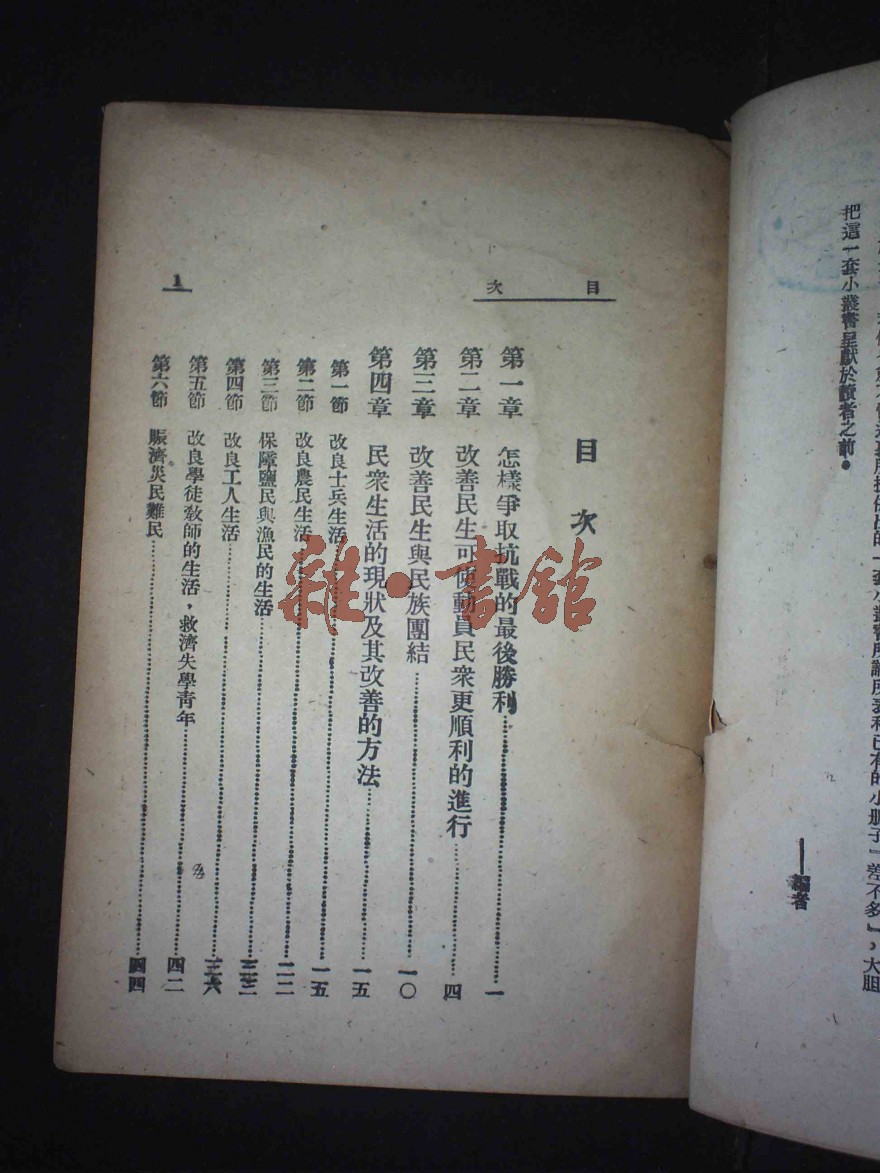 的一套小叢書所談所
和已有的小冊子「差不多」，大胆
把這一套小叢書呈獻於讀者之前。
——編者
目次
1
目次
第一章 怎樣爭取抗戰的最後勝利……一
第二章 改善民生可使動員民衆更順利的進行……四
第三章 改善民生與民族團結……一〇
第四章 民衆生活的現狀及其改善的方法……一五
第一節 改良士兵生活……一五
第二節 改良農民生活……二二
第三節 保障鹽民與漁民的生活……三三
第四節 改良工人生活……三六
第五節 改良學徒教師的生活，救濟失學青年……四二
第六節 賑濟災民難民……四四
雜·書館